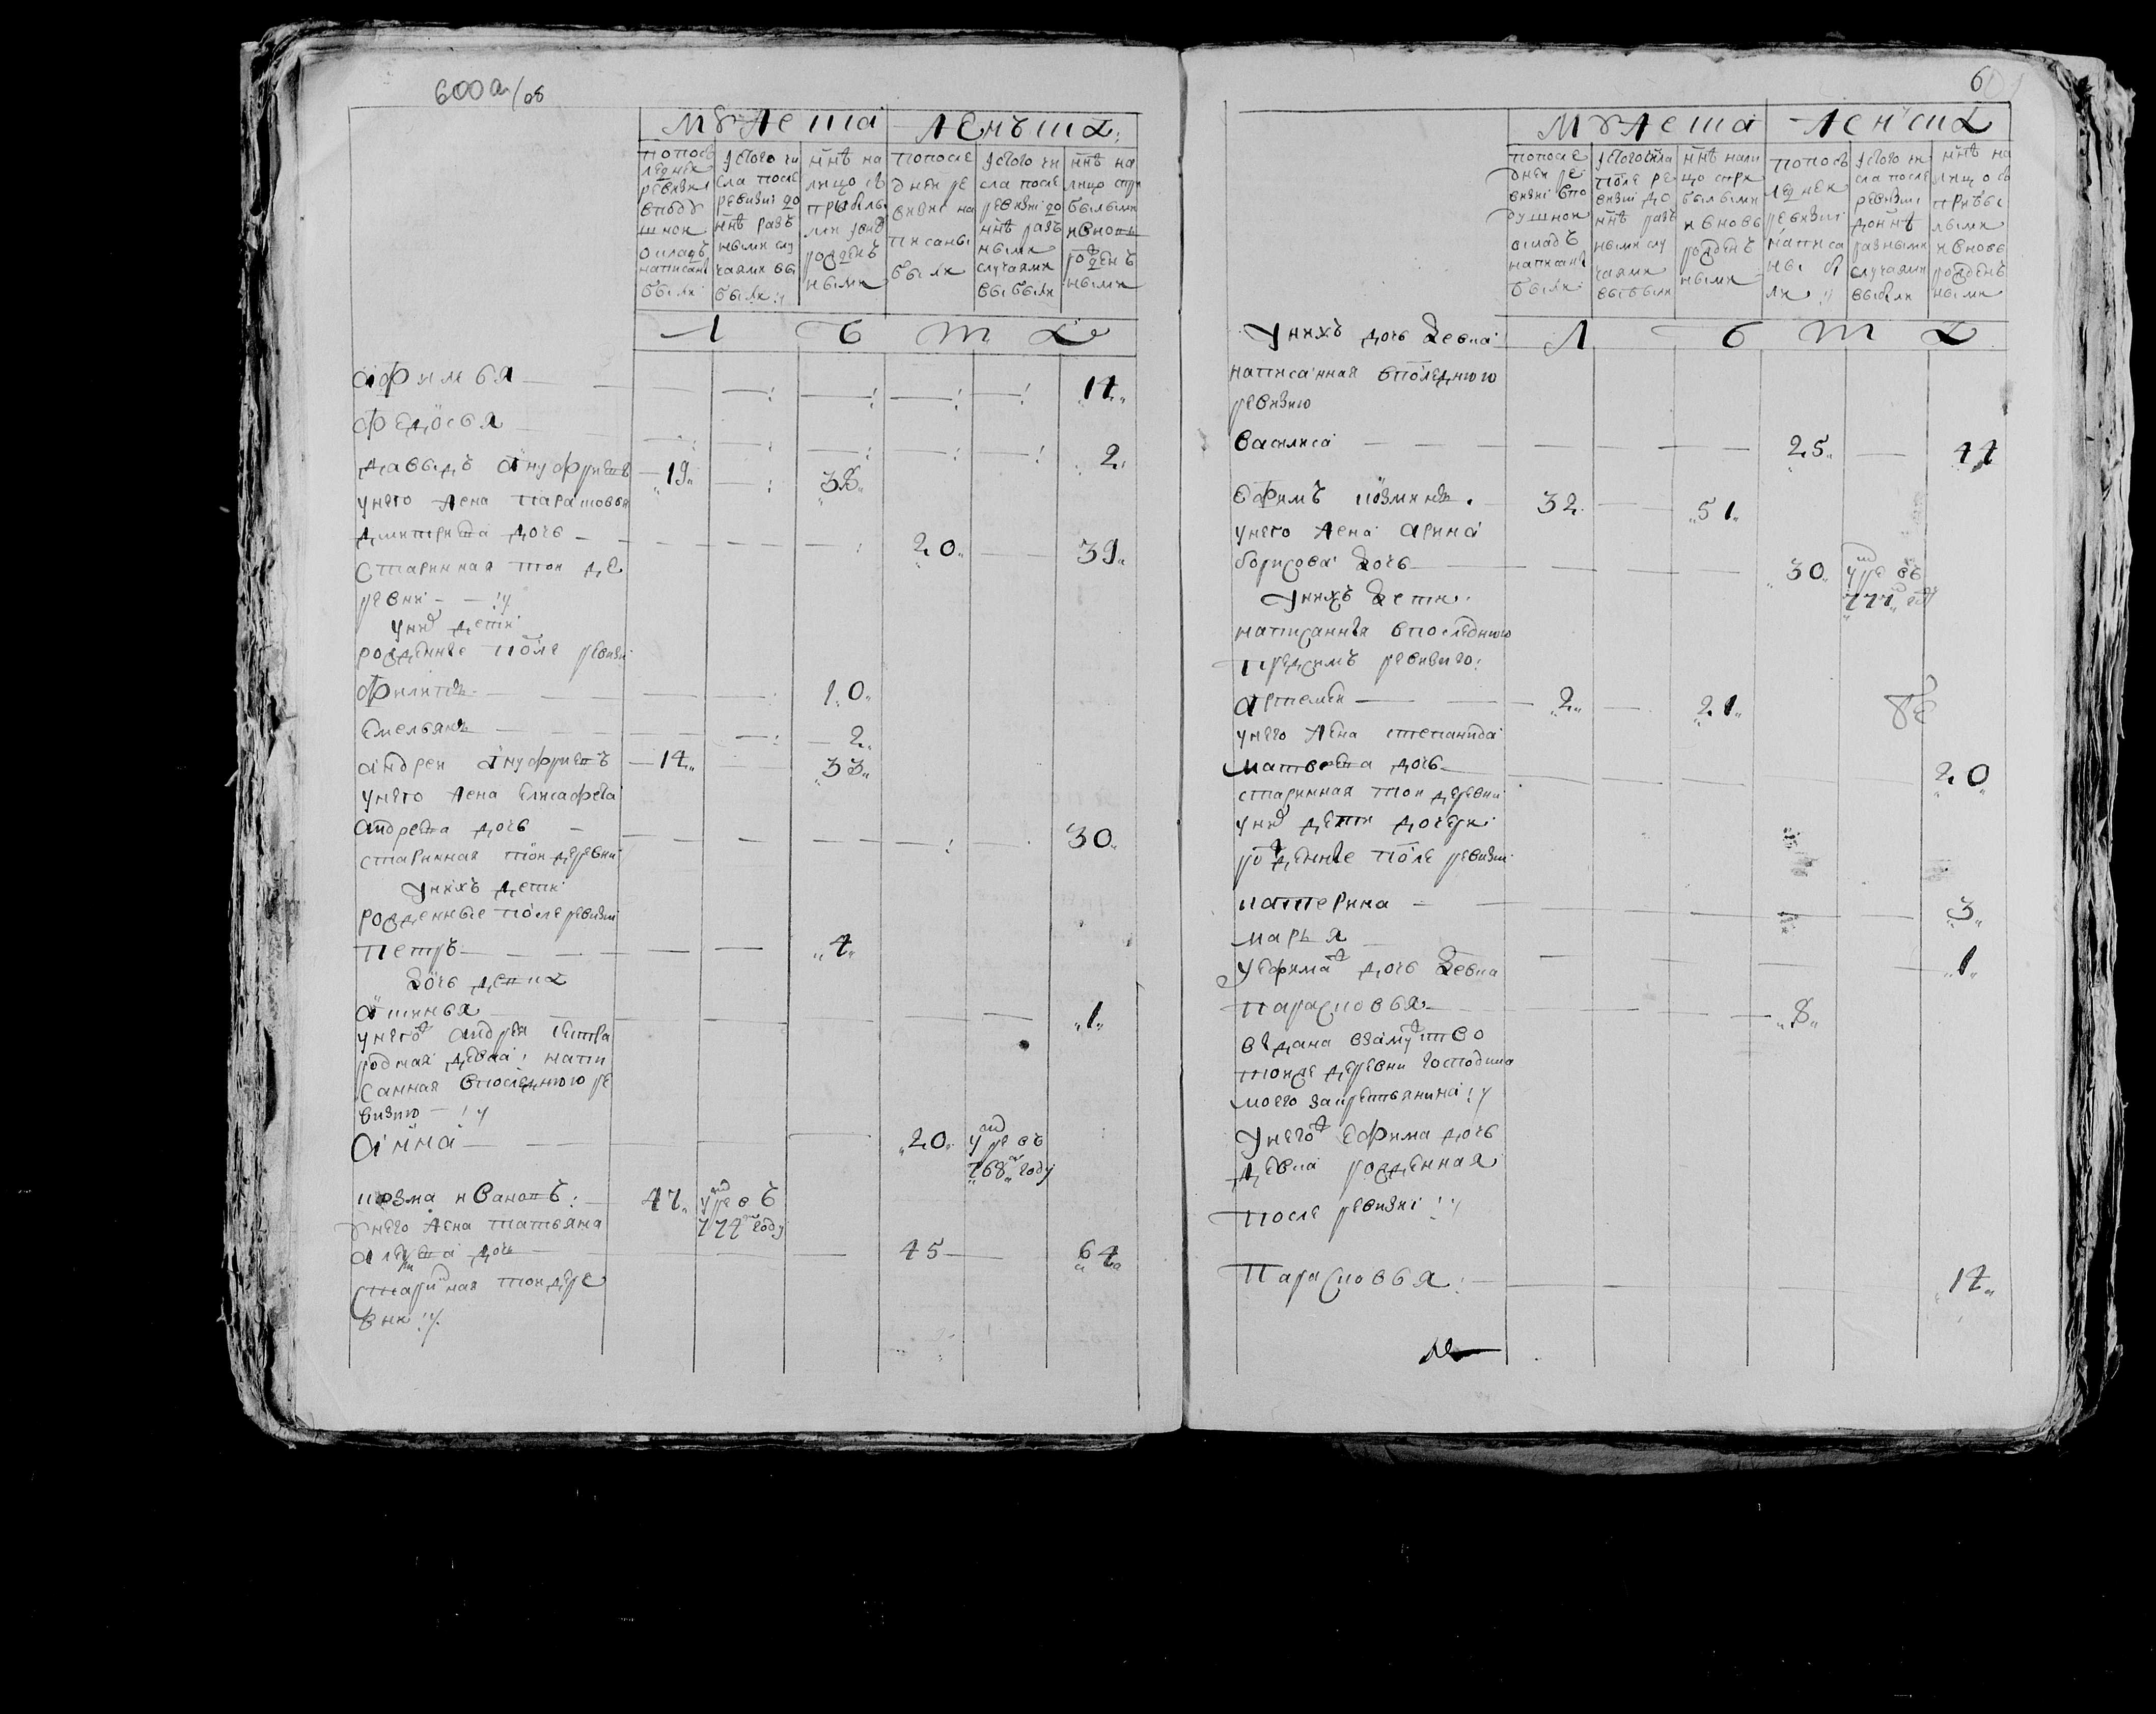 600 а/об
мужеска женска:
попосъ
ледней
ревизи
вподу
шной
окладъ
написаны
были
ізтого чи
сла после
ревизиі до
ннѣ разъ
ными слу
чаями вы
были
ннѣ на
лицо съ
прибылы
ми ивно
рожденъ
ными
попосле
дней ре
визиі на
писаны
были
ізтого чи
сла после
ревизиі до
ннѣ разъ
ными
случаями
выбыли
ннѣ на
лицо спри
былыми
ивновь
рожденъ
ными
л ѣ т а
афимья 14
федосья 2
давыдъ ануфриевъ 19 38
унего жена парасковья
дмитрева дочь 20 39
старинная той де
ревни
уних дети
рожденные после ревизи
филипъ 10
емельянъ 2
андрей ануфриевъ 14 33
унего жена елисафета
андрева дочь 30
старинная той деревни
унихъ дети
рожденные после ревизии
петръ 4
дочь девка
аксинья 1
унегож андрея сестра
родная девка напи
санная впоследнюю ре
визию
анна 20 умре въ
768м году
козма ивановъ 47 умре въ
774м году
унего жена татьяна
алексева дочь 45 64
старинная той дере
вни
601
мужеска женска
попосле
дней ре
визиі впо
душной
окладъ
написаны
были
ізтого числа
после ре
визиі до
ннѣ разъ
ными слу
чаями
выбыли
ннѣ нали
цо спри
былыми
ивновь
рожденъ
ными
попось
ледней
ревизиі
написа
ны бы
ли
ізтого чи
сла после
ревизиі
доннѣ
разными
случаями
выбыли
ннѣ на
лицо съ
прибы
лыми
ивновь
рожденъ
ными
л ѣ т а
унихъ дочь девка
написанная впоследнюю
ревизию
василиса 25 44
ефимъ козминъ 32 51
унего жена арина
борисова дочь 30 умре въ
777м году
унихъ дети
написанныя впоследнюю
предсимъ ревизию
артемей 2 21
унего жена степанида
матвева дочь 20
старинная той деревни
уних дети дочери
рожденные после ревизии
катерина 3
марья 1
уефимаж дочь девка
парасковья 8
выдана взамужство
тойже деревни господина
моего закрестьянина
унегож ефима дочь
девка рожденная
после ревизиі
парасковья 14